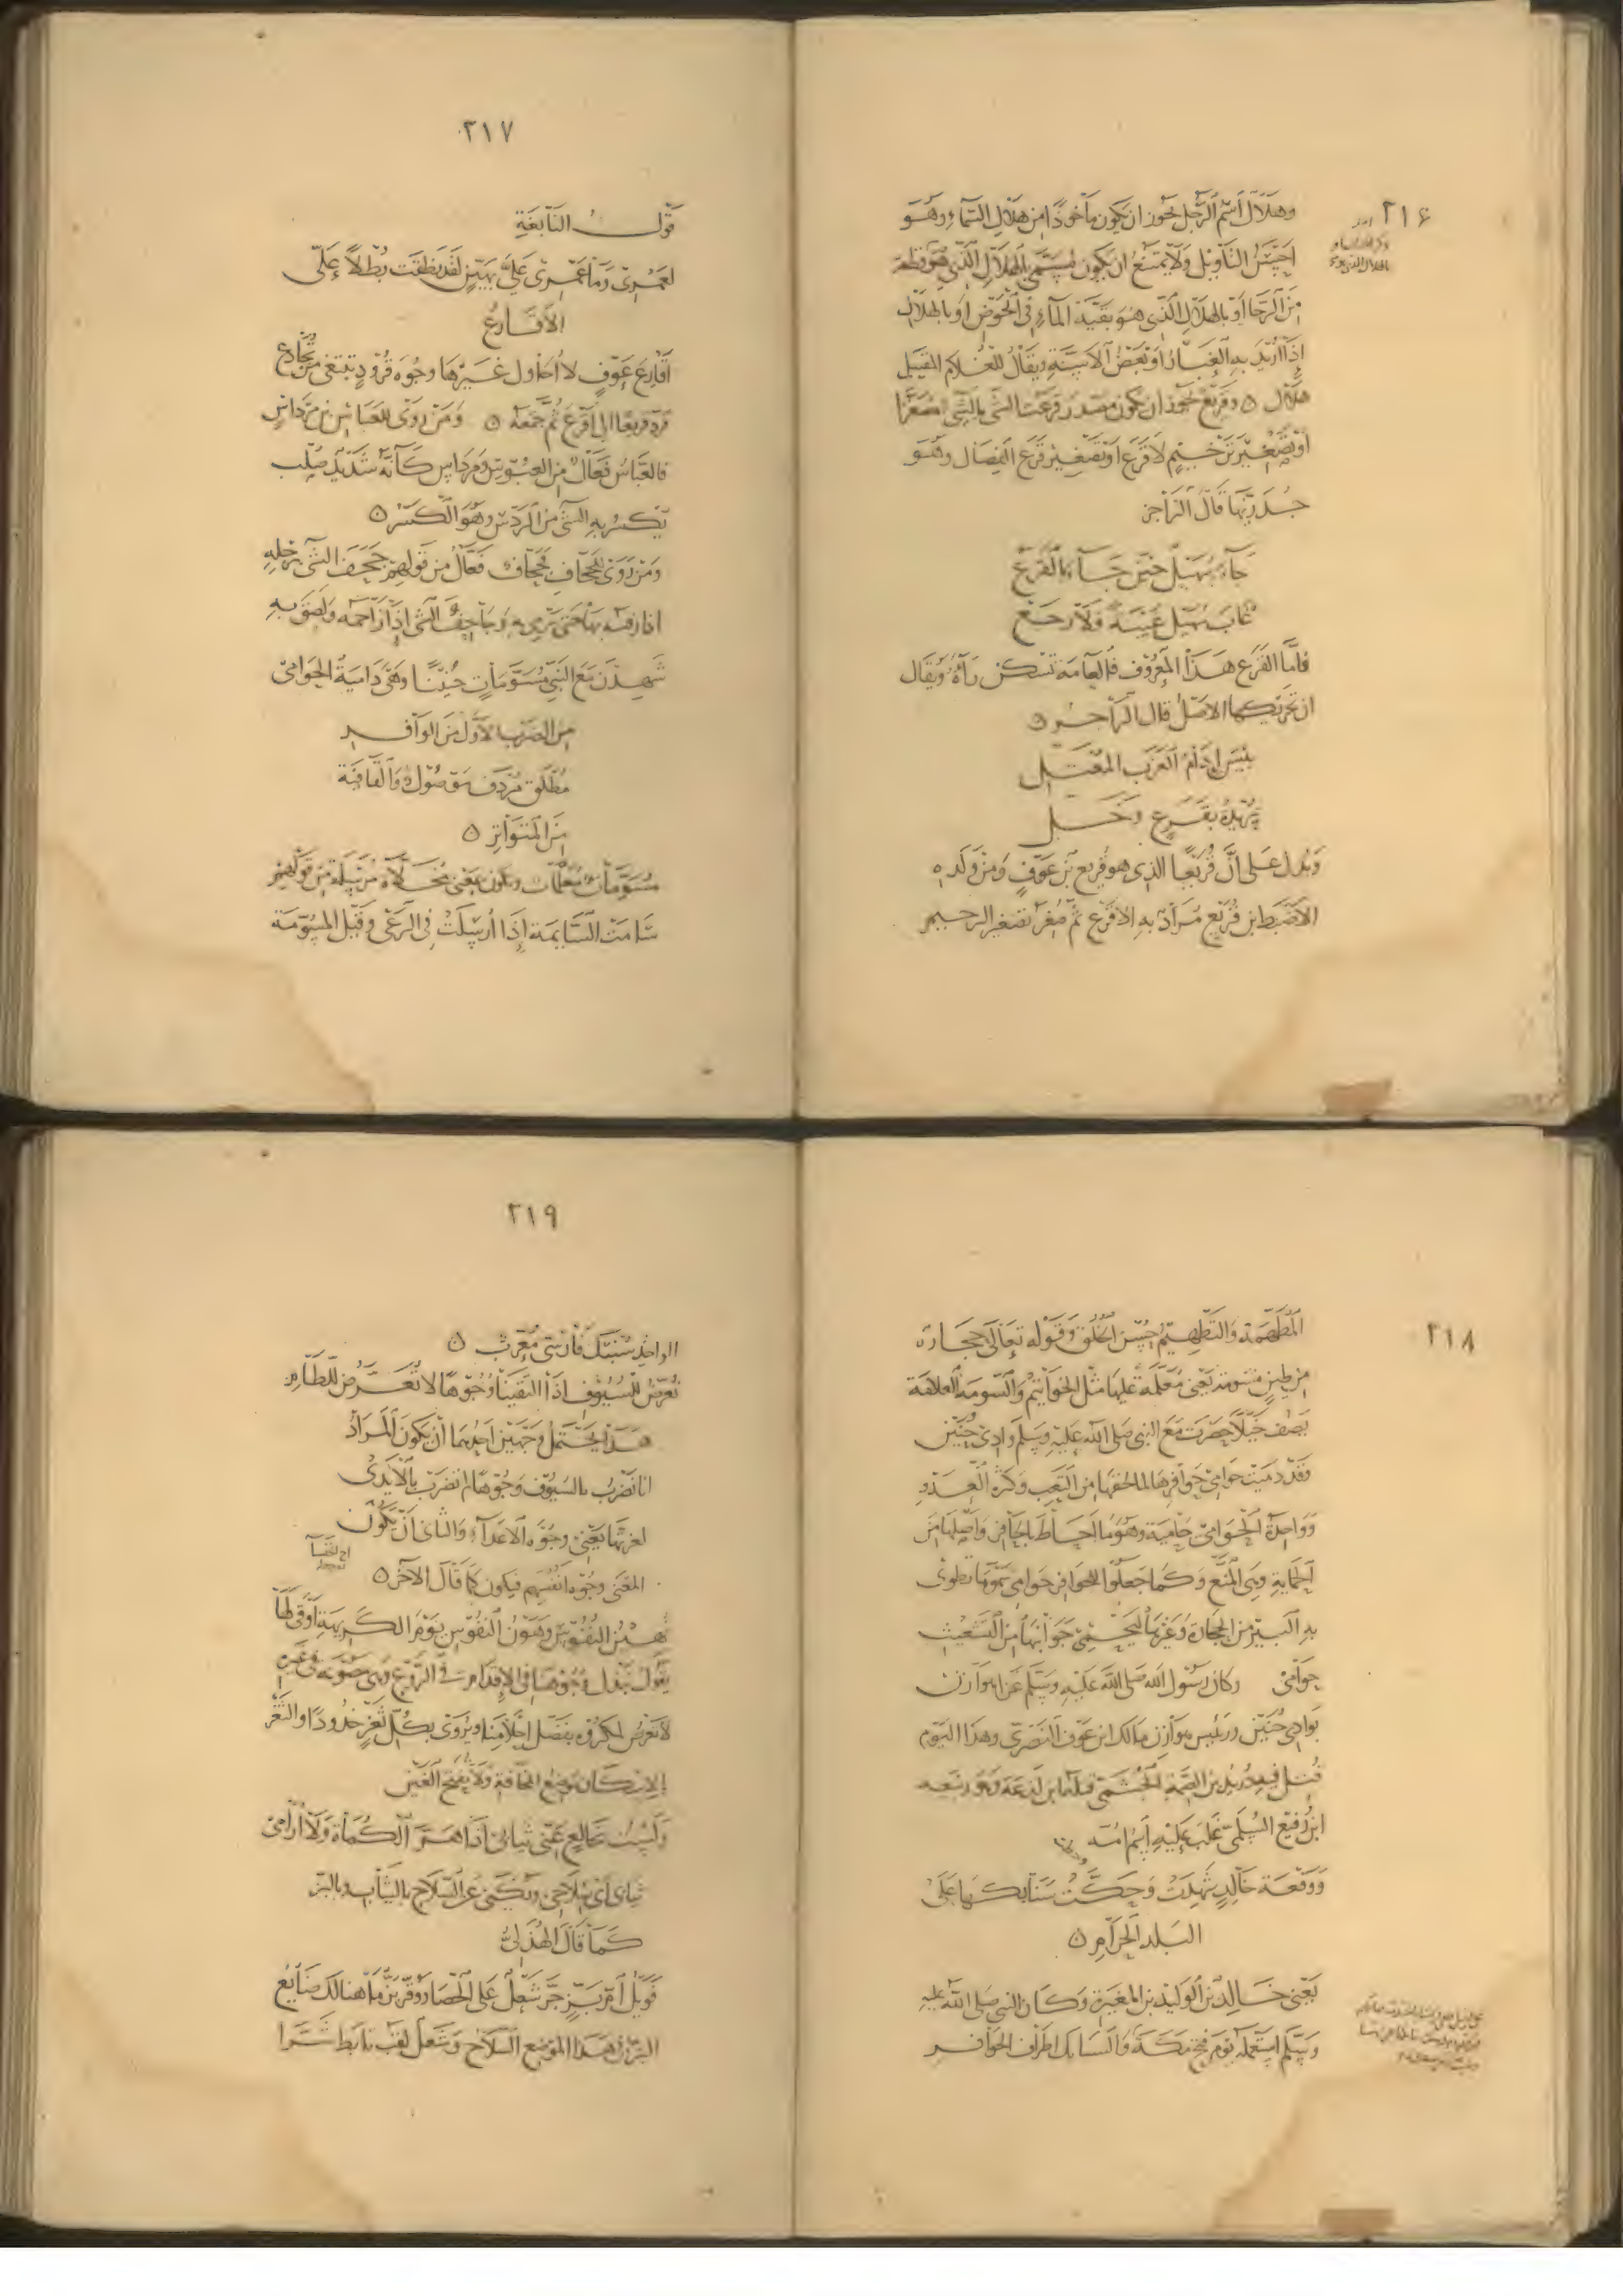 ٢١٦
وهلال اسم الرجل يجوز ان يكون ماخوذا من هلال السماء وهو
احسن التأويل ولا يمتنع ان يكون يسمى بالهلال الذي هو قطعة
من الرحا او بالهلال الذي هو بقية الماء في الحوض او بالهلال
إذا أريد به الغبار او بعض الاسنة ويقال للغلام المقبل
هلال ٥ وقريع يجوز ان يكون مصدر قرعت الشي بالشي مصغرا
او تصغير ترخيم لاقرع او تصغير قرع الفصال وهو
جدريها قال الراجز
جاء سهيل حين جاء بالقرع
غاب سهيل غيبة فلا رجع
فاما القرع هذا المعروف فالعامة تسكن راءه ويقال
ان تحريكها الاصل قال الراجز ٥
بئس إدام العزب المعتل
ثريدة بقرع وخل
ويدل على ان قريعا الذي هو قريع بن عوف ومن ولده
الاضبط ابن قريع مراد به الاقرع ثم صغر تصغير الترخيم
٢١٧
قول النابغة
لعمري وما عمري علي بهين لقد نطقت بطلا علي
الاقارع
أقارع عوف لا أحاول غيرها وجوه قرود تبتغي من تجادع
فرد قريعا الى اقرع ثم جمعه ٥ ومن روى للعباس بن مرداس
فالعباس فعال من العبوس ومرداس كأنه شديد صلب
يكسر به الشي من الردس وهو الكسر ٥
ومن روى للجحاف فجحاف فعال من قولهم جحف الشي برجله
اذا رفسه بها حتى يرمي به وجاحف الشي اذا زاحمه ولصق به
شهدن مع النبي مسومات حنينا وهي دامية الحوامي
من الضرب الاول من الوافر
مطلق مردف موصول والقافية
من المتواتر ٥
مسومات معلمات وتكون بمعنى مخلاة مرسلة من قولهم
سامت السايمة إذا أرسلت في الرعي وقيل المسومة
٢١٨
المطهمة والتطهيم حسن الخلق وقوله تعالى حجارة
من طين مسومة يعني معلمة عليها مثل الخواتيم والسومة العلامة
يصف خيلا حضرت مع النبي صلى الله عليه وسلم وادي حنين
وقد دميت حوامي حوافرها لما لحقها من التعب وكثرة العدو
وواحدة الحوامي حامية وهو ما احاط بالحافر واصلها من
الحماية وهي المنع وكما جعلوا للحوافر حوامي سموا ما تطوى
به البئر من الحجارة وغيرها ليحمي جوانبها من التشعيث
حوامي وكان رسول الله صلى الله عليه وسلم غزا هوازن
بوادي حنين ورئيس هوازن مالك ابن عوف النصري وهذا اليوم
قتل فيه دريد بن الصمة الجشمي قتله ابن لدغة وهو ربيعة
ابن رفيع السلمي غلب عليه اسم امه
ووقعة خالد شهدت وحكت سنابكها على
البلد الحرام ٥
يعني خالد بن الوليد بن المغيرة وكان النبي صلى الله عليه
وسلم استعمله يوم فتح مكة والسنابك اطراف الحوافر
٢١٩
الواحد سنبك فارسي معرب ٥
نعرض للسيوف اذا التقينا وجوها لا تعرض للطام
هذا يحتمل وجهين احدهما أن يكون المراد
انا نضرب بالسيوف وجوها لم تضرب بالأيدي
لعزتها يعني وجوه الاعداء والثاني أن يكون
المعنى وجوه انفسهم فيكون كما قال الآخر ٥
نهين النفوس وهون النفوس يوم الكريهة أوقى لها
يقول نبذل وجوهنا في الإقدام في الروع وهي مصونة في غيره
لا تعرض لمكروه بفضل احلامنا ويروى بكل ثغر خدودا والثغر
الاسكان موضع المخافة ولا يفتح الغين
ولست بخالع عني ثيابي اذا هر الكماة ولا أرامي
ثيابي اي سلاحي ويكنى عن السلاح بالثياب وبالبز
كما قال الهذلي
فويل أم بز جر شعل على الحصا ووقر بز ما هنالك ضايع
البز في هذا الموضع السلاح وشعل لقب تابط شرا